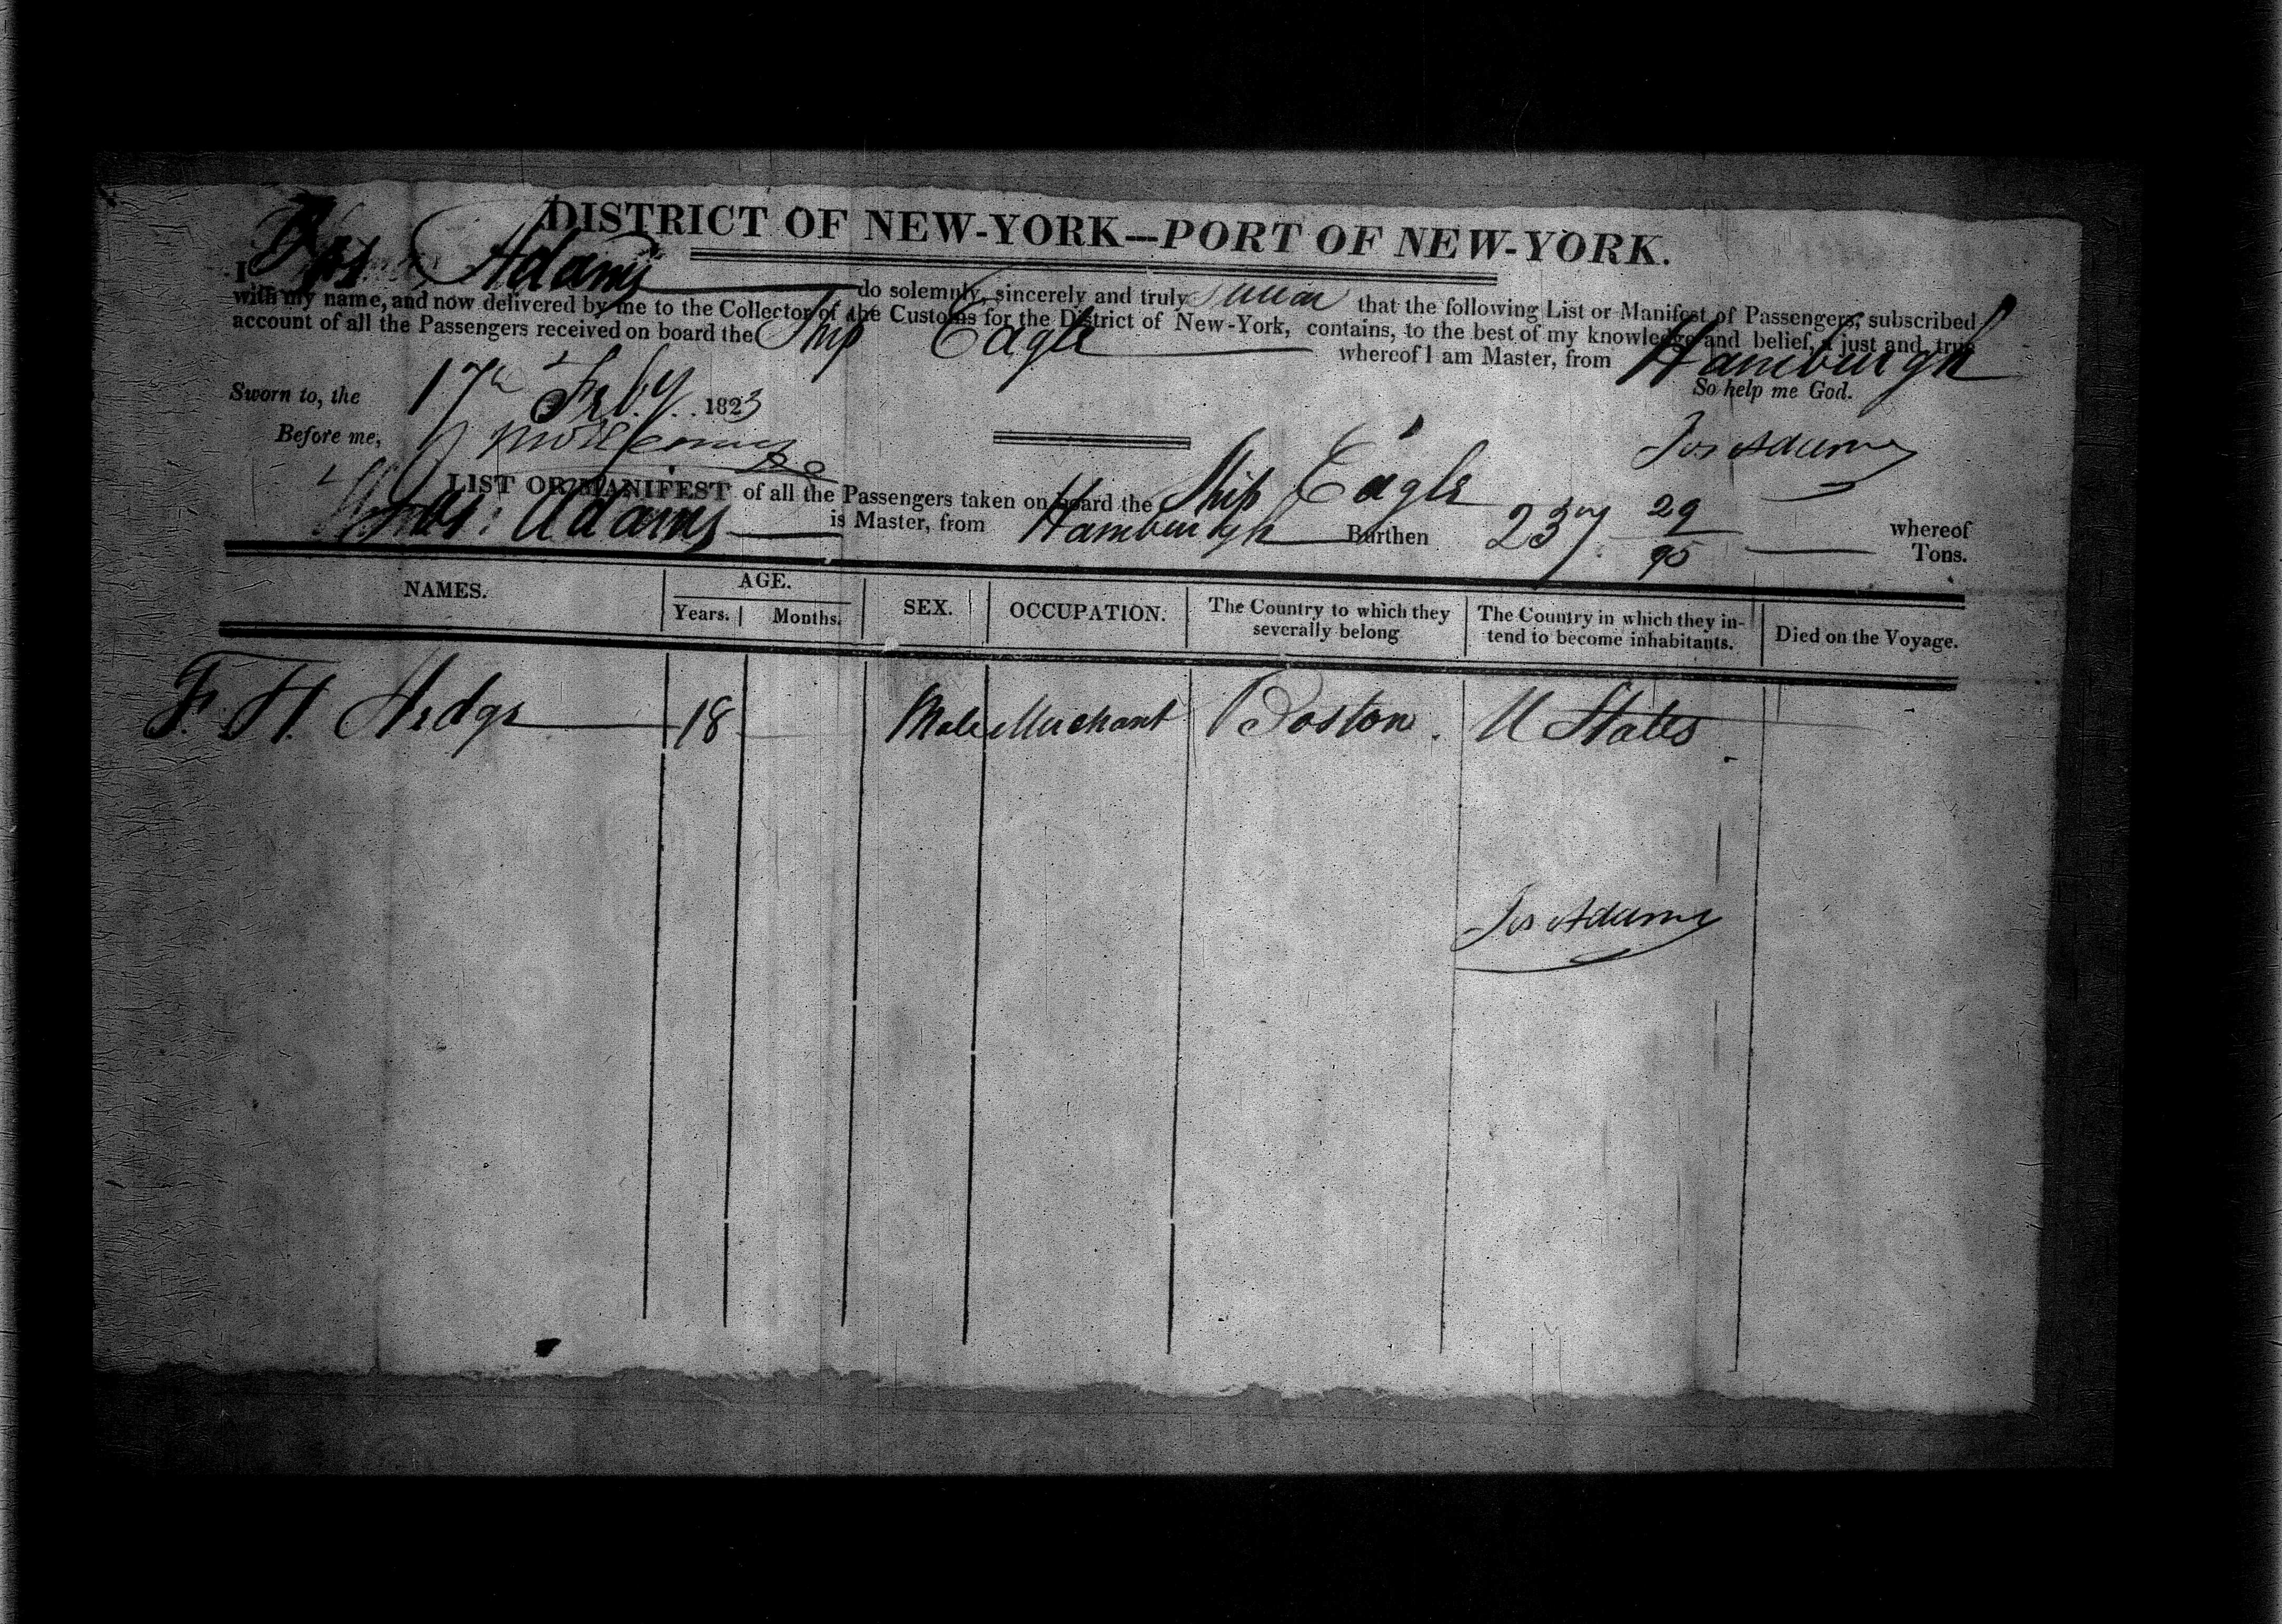 DISTRICT OF NEW-YORK---PORT OF NEW-YORK.
I Jos Adams do solemnly, sincerely and truly swear that the following List or Manifest of Passengers, subscribed
with my name, and now delivered by me to the Collector of the Customs for the District of New-York, contains, to the best of my knowledge and belief, a just and true
account of all the Passengers received on board the Ship Eagle whereof I am Master, from Hamburgh
So help me God.
Sworn to, the 17th Feby. 1823
Before me,
Jos Adams
LIST OR MANIFEST of all the Passengers taken on board the Ship Eagle whereof
Jos: Adams is Master, from Hamburgh Burthen 237 29/95 Tons.
NAMES. AGE. Years. Months. SEX. OCCUPATION. The Country to which they severally belong The Country in which they intend to become inhabitants. Died on the Voyage.
F. H. Hedge 18 Male Merchant Boston. U States
Jos Adams